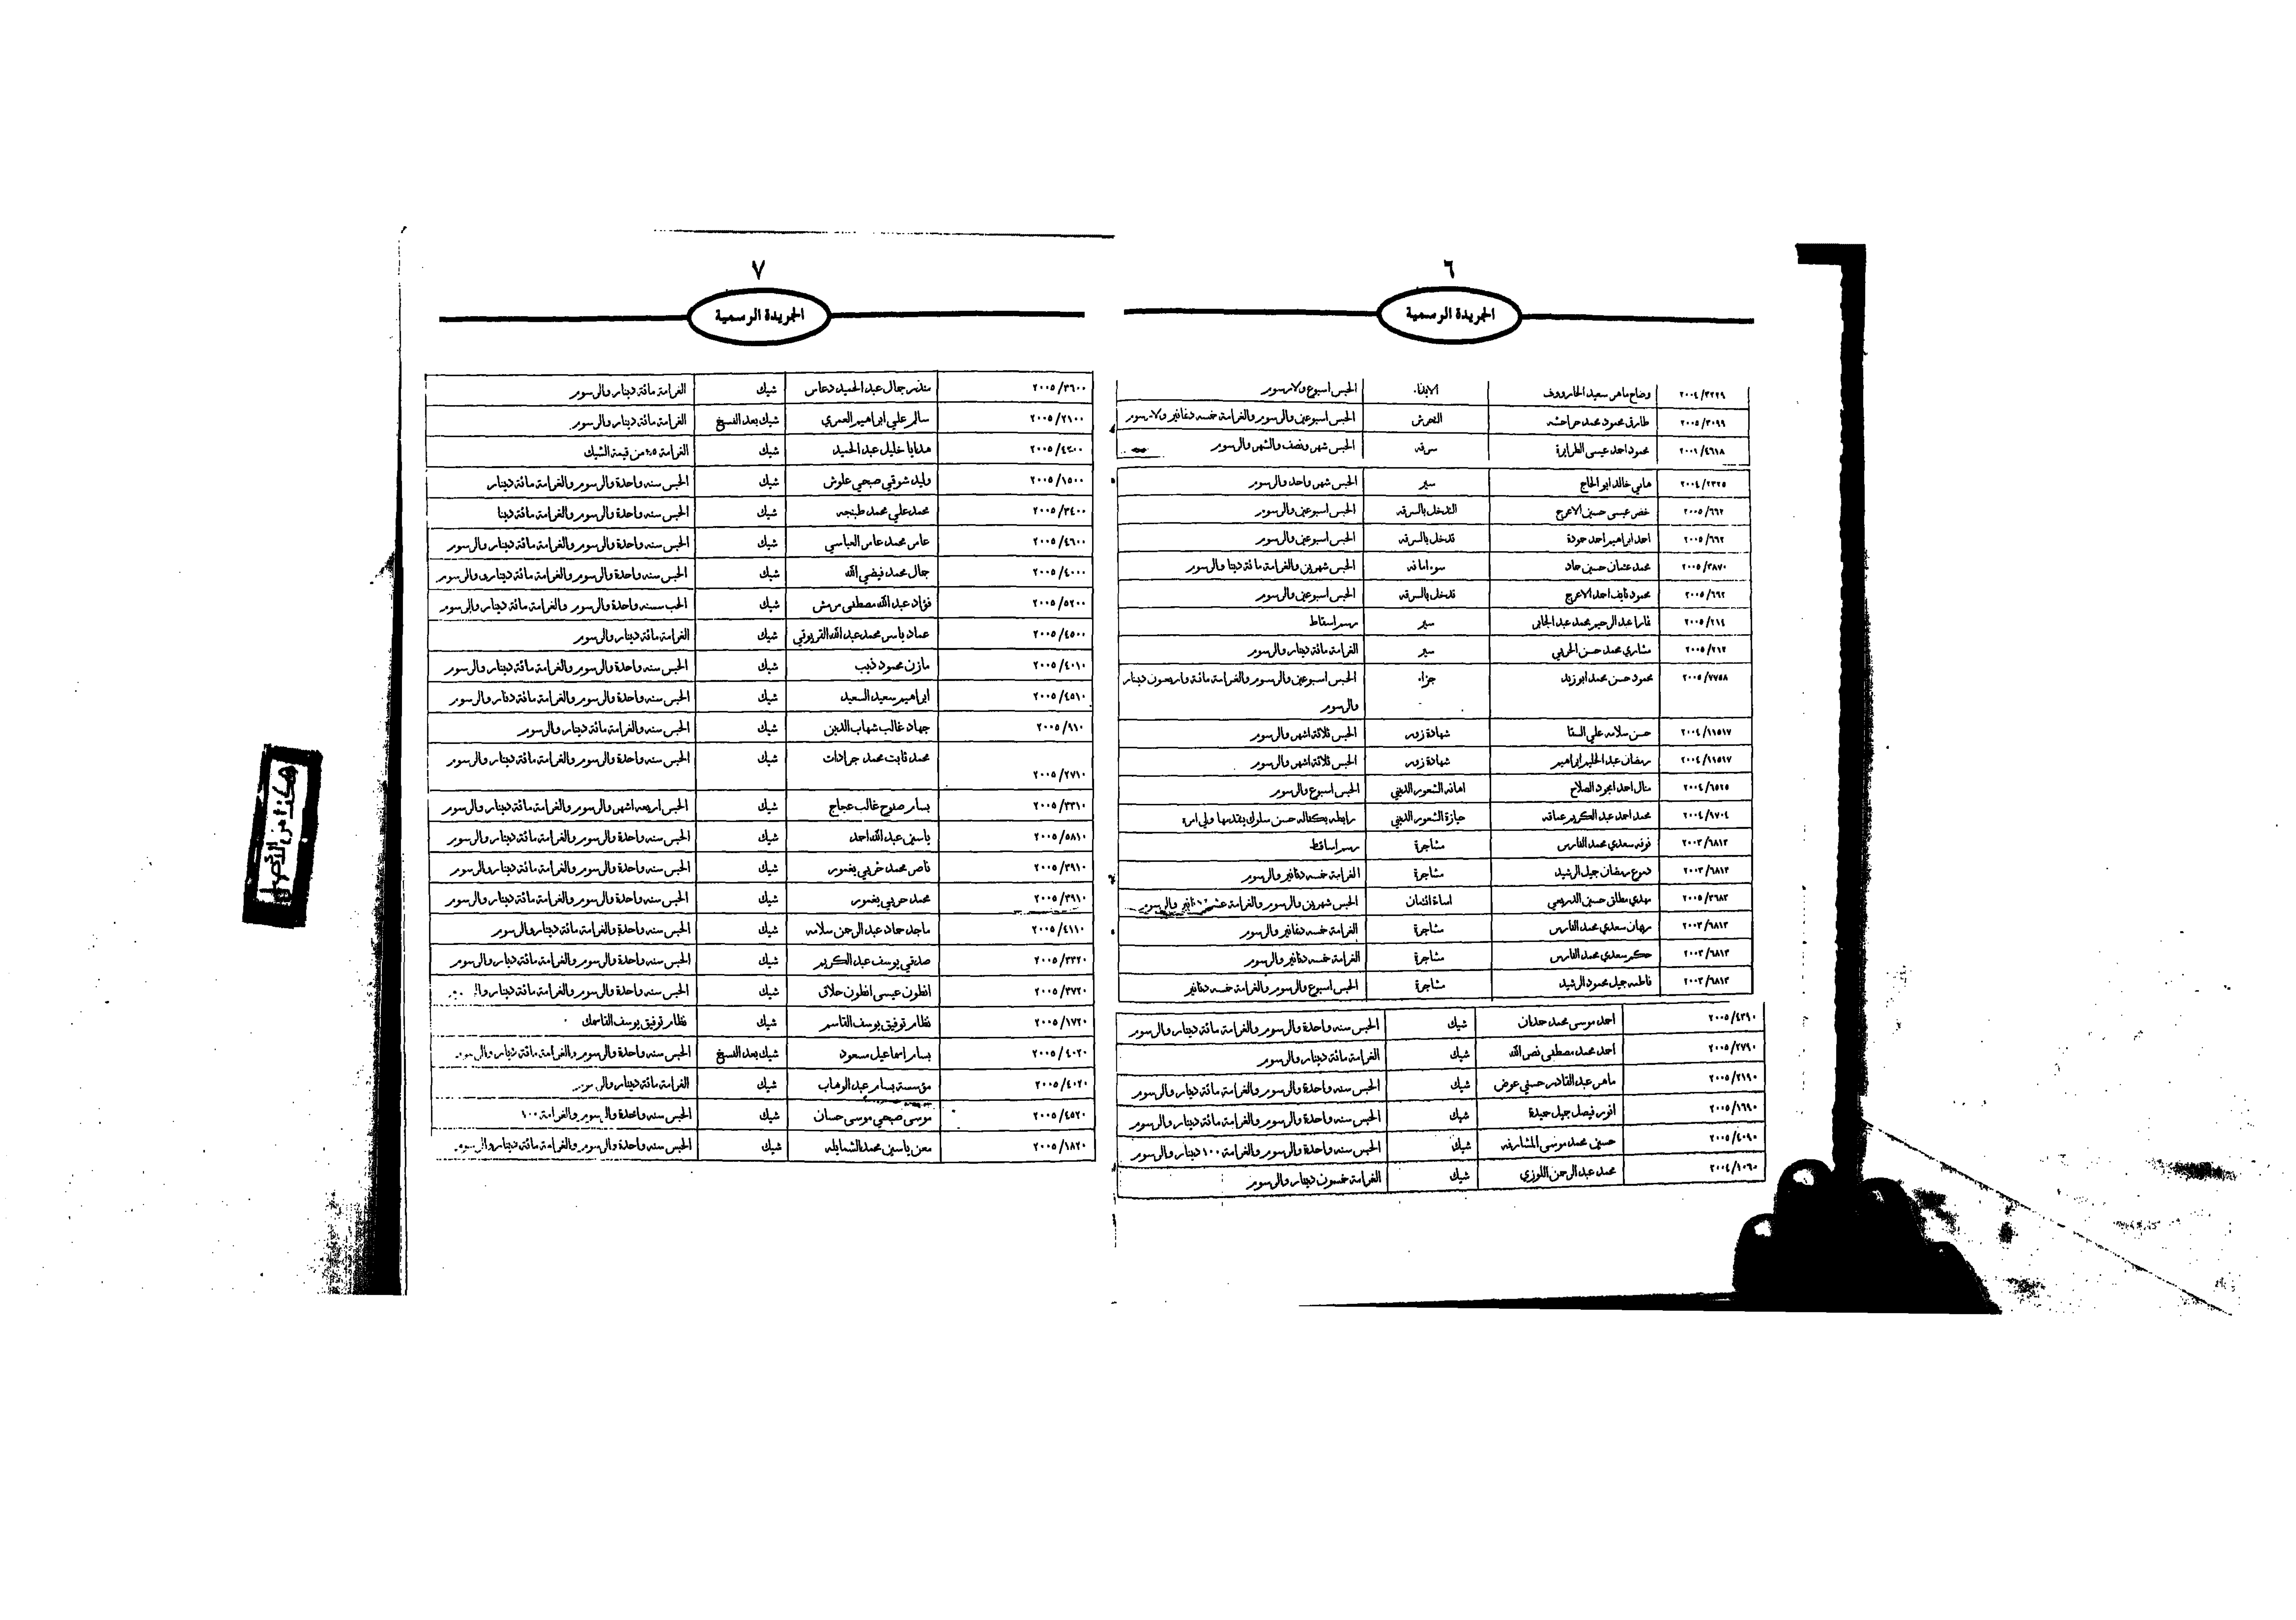 ٦
الجريدة الرسمية
٢٠٠٤/٣٢٢٩ وضاح ماهر سعيد الحارووف الايذاء الحبس اسبوع ولارسوم
٢٠٠٥/٣٠٩٩ طارق محمود محمد حراحشه التحرش الحبس اسبوعين والرسوم والغرامة خمسه دنانير ولارسوم
٢٠٠١/٤٦١٨ محمود احمد عيسى الطرايرة سرقه الحبس شهر ونصف والشهر والرسوم
٢٠٠٤/٢٣٢٥ هاني خالد ابو الحاج سير الحبس شهر واحد والرسوم
٢٠٠٥/٦٦٢ خضر عيسى حسين الاعرج التدخل بالسرقه الحبس اسبوعين والرسوم
٢٠٠٥/٦٦٢ احمد ابراهيم احمد حمودة تدخل بالسرقه الحبس اسبوعين والرسوم
٢٠٠٥/٣٨٧٠ محمد عثمان حسين حماد سوء امانه الحبس شهرين والغرامة مائة دينا والرسوم
٢٠٠٥/٦٦٢ محمود نايف احمد الاعرج تدخل بالسرقه الحبس اسبوعين والرسوم
٢٠٠٥/٢١٤ فارا عبد الرحيم محمد عبد الجابي سير رسم اسقاط
٢٠٠٥/٢١٢ مشاري محمد حسن الحربي سير الغرامة مائة دينار والرسوم
٢٠٠٥/٧٧٥٨ محمود حسن محمد ابوزيد جزاء الحبس اسبوعين والرسوم والغرامة مائة واربعون دينار
والرسوم
٢٠٠٤/١١٥١٧ حسن سلامه علي السقا شهادة زور الحبس ثلاثة اشهر والرسوم
٢٠٠٤/١١٥١٧ رمضان عبد الحليم ابراهيم شهادة زور الحبس ثلاثة اشهر والرسوم
٢٠٠٤/٦٥٢٥ منال احمد ابجود الصلاح اهانه الشعور الديني الحبس اسبوع والرسوم
٢٠٠٤/٩٧٠٤ محمد احمد عبد الكريم عماقه حيازة الشعور الديني رابطه بكفاله حسن سلوك يقدمها ولي امره
٢٠٠٣/٦٨١٣ نوفه سعدي محمد الفارس مشاجرة رسم اساقط
٢٠٠٣/٦٨١٣ دموع رمضان جميل الرشيد مشاجرة الغرامة خمسه دنانير والرسوم
٢٠٠٥/٣٦٨٣ مهدي مطلق حسين الدريعي اساءة ائتمان الحبس شهرين والرسوم والغرامة عشرة دنانير والرسوم
٢٠٠٣/٦٨١٣ رمهان سعدي محمد الفارس مشاجرة الغرامة خمسه دنانير والرسوم
٢٠٠٣/٦٨١٣ حكم سعدي محمد الفارس مشاجرة الغرامة خمسه دنانير والرسوم
٢٠٠٣/٦٨١٣ فاطمه جميل محمود الرشيد مشاجرة الحبس اسبوع والرسوم والغرامة خمسه دنانير
٢٠٠٥/٤٣٩٠ احمد موسى محمد حمدان شيك الحبس سنه واحدة والرسوم والغرامة مائة دينار والرسوم
٢٠٠٥/٢٧٩٠ احمد محمد مصطفى نصر الله شيك الغرامة مائة دينار والرسوم
٢٠٠٥/٢١٩٠ ماهر عبد القادر حسني عوض شيك الحبس سنه واحدة والرسوم والغرامة مائة دينار والرسوم
٢٠٠٥/١٦٩٠ انور فيصل جميل حميدة شيك الحبس سنه واحدة والرسوم والغرامة مائة دينار والرسوم
٢٠٠٥/٤٠٩٠ حسين محمد موسى المشارفه شيك الحبس سنه واحدة والرسوم والغرامة ١٠٠ دينار والرسوم
٢٠٠٤/١٠٦٠ محمد عبد الرحمن اللوزي شيك الغرامة خمسون دينار والرسوم
٧
الجريدة الرسمية
٢٠٠٥/٣٦٠٠ منذر جمال عبد الحميد دعاس شيك الغرامة مائة دينار والرسوم
٢٠٠٥/٢١٠٠ سالم علي ابراهيم العمري شيك بعد الفسخ الغرامة مائة دينار والرسوم
٢٠٠٥/٤٢٠٠ هدايا خليل عبد الحميد شيك الغرامة ٥% من قيمة الشيك
٢٠٠٥/١٥٠٠ وليد شوقي صبحي علوش شيك الحبس سنه واحدة والرسوم والغرامة مائة دينار
٢٠٠٥/٣٤٠٠ محمد علي محمد طبنجه شيك الحبس سنه واحدة والرسوم والغرامة مائة دينا
٢٠٠٥/٤٦٠٠ عامر محمد عامر العباسي شيك الحبس سنه واحدة والرسوم والغرامة مائة دينار والرسوم
٢٠٠٥/٤٠٠٠ جمال محمد فيضي الله شيك الحبس سنه واحدة والرسوم والغرامة مائة دينارو والرسوم
٢٠٠٥/٥٢٠٠ فؤاد عبد الله مصطفى مرمش شيك الحب سسنه واحدة والرسوم والغرامة مائة دينار والرسوم
٢٠٠٥/٤٥٠٠ عماد ياسر محمد عبد الله القريوتي شيك الغرامة مائة دينار والرسوم
٢٠٠٥/٤٠١٠ مازن محمود ذيب شيك الحبس سنه واحدة والرسوم والغرامة مائة دينار والرسوم
٢٠٠٥/٤٥١٠ ابراهيم سعيد السعيد شيك الحبس سنه واحدة والرسوم والغرامة مائة دنار والرسوم
٢٠٠٥/٩١٠ جهاد غالب شهاب الدين شيك الحبس سنه والغرامة مائة دينار والرسوم
٢٠٠٥/٢٧١٠ محمد ثابت محمد جرادات شيك الحبس سنه واحدة والرسوم والغرامة مائة دينار والرسوم
٢٠٠٥/٣٣١٠ بسام صبوح غالب عجاج شيك الحبس اربعه اشهر والرسوم والغرامة مائة دينار والرسوم
٢٠٠٥/٥٨١٠ ياسين عبد الله احمد شيك الحبس سنه واحدة والرسوم والغرامة مائة دينار والرسوم
٢٠٠٥/٣٩١٠ ناصر محمد حربي يغمور شيك الحبس سنه واحدة والرسوم والغرامة مائة دينار والرسوم
٢٠٠٥/٣٩١٠ محمد حربي يغمور شيك الحبس سنه واحدة والرسوم والغرامة مائة دينار والرسوم
٢٠٠٥/٤١١٠ ماجد حماد عبد الرحمن سلامه شيك الحبس سنه واحدة والغرامة مائة دينار والرسوم
٢٠٠٥/٣٣٢٠ صدقي يوسف عبد الكريم شيك الحبس سنه واحدة والرسوم والغرامة مائة دينار والرسوم
٢٠٠٥/٣٧٢٠ انطون عيسى انطون حلاق شيك الحبس سنه واحدة والرسوم والغرامة مائة دينار
٢٠٠٥/١٧٢٠ نظام توفيق يوسف القاسم شيك نظام توفيق يوسف القاسمك
٢٠٠٥/٤٠٢٠ بسام اسماعيل مسعود شيك بعد الفسخ الحبس سنه واحدة والرسوم والغرامة مائة دينار والرسوم
٢٠٠٥/٤٠٢٠ مؤسسة بسام عبد الوهاب شيك الغرامة مائة دينار والرسوم
٢٠٠٥/٤٥٢٠ موسى صبحي موسى حسان شيك الحبس سنه واحدة والرسوم والغرامة ١٠٠
٢٠٠٥/١٨٢٠ معن ياسين محمد الشمايله شيك الحبس سنه واحدة والرسوم والغرامة مائة دينار والرسوم
هكذا من الأصل